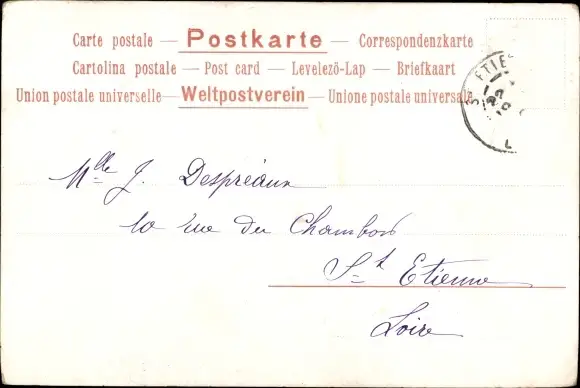 Carte postale — Postkarte — Correspondenzkarte
Cartolina postale — Post card — Levelező-Lap — Briefkaart
Union postale universelle — Weltpostverein — Unione postale universale
St ETIE
Mlle J. Despréaux
10 rue du Chambon
St Etienne
Loire